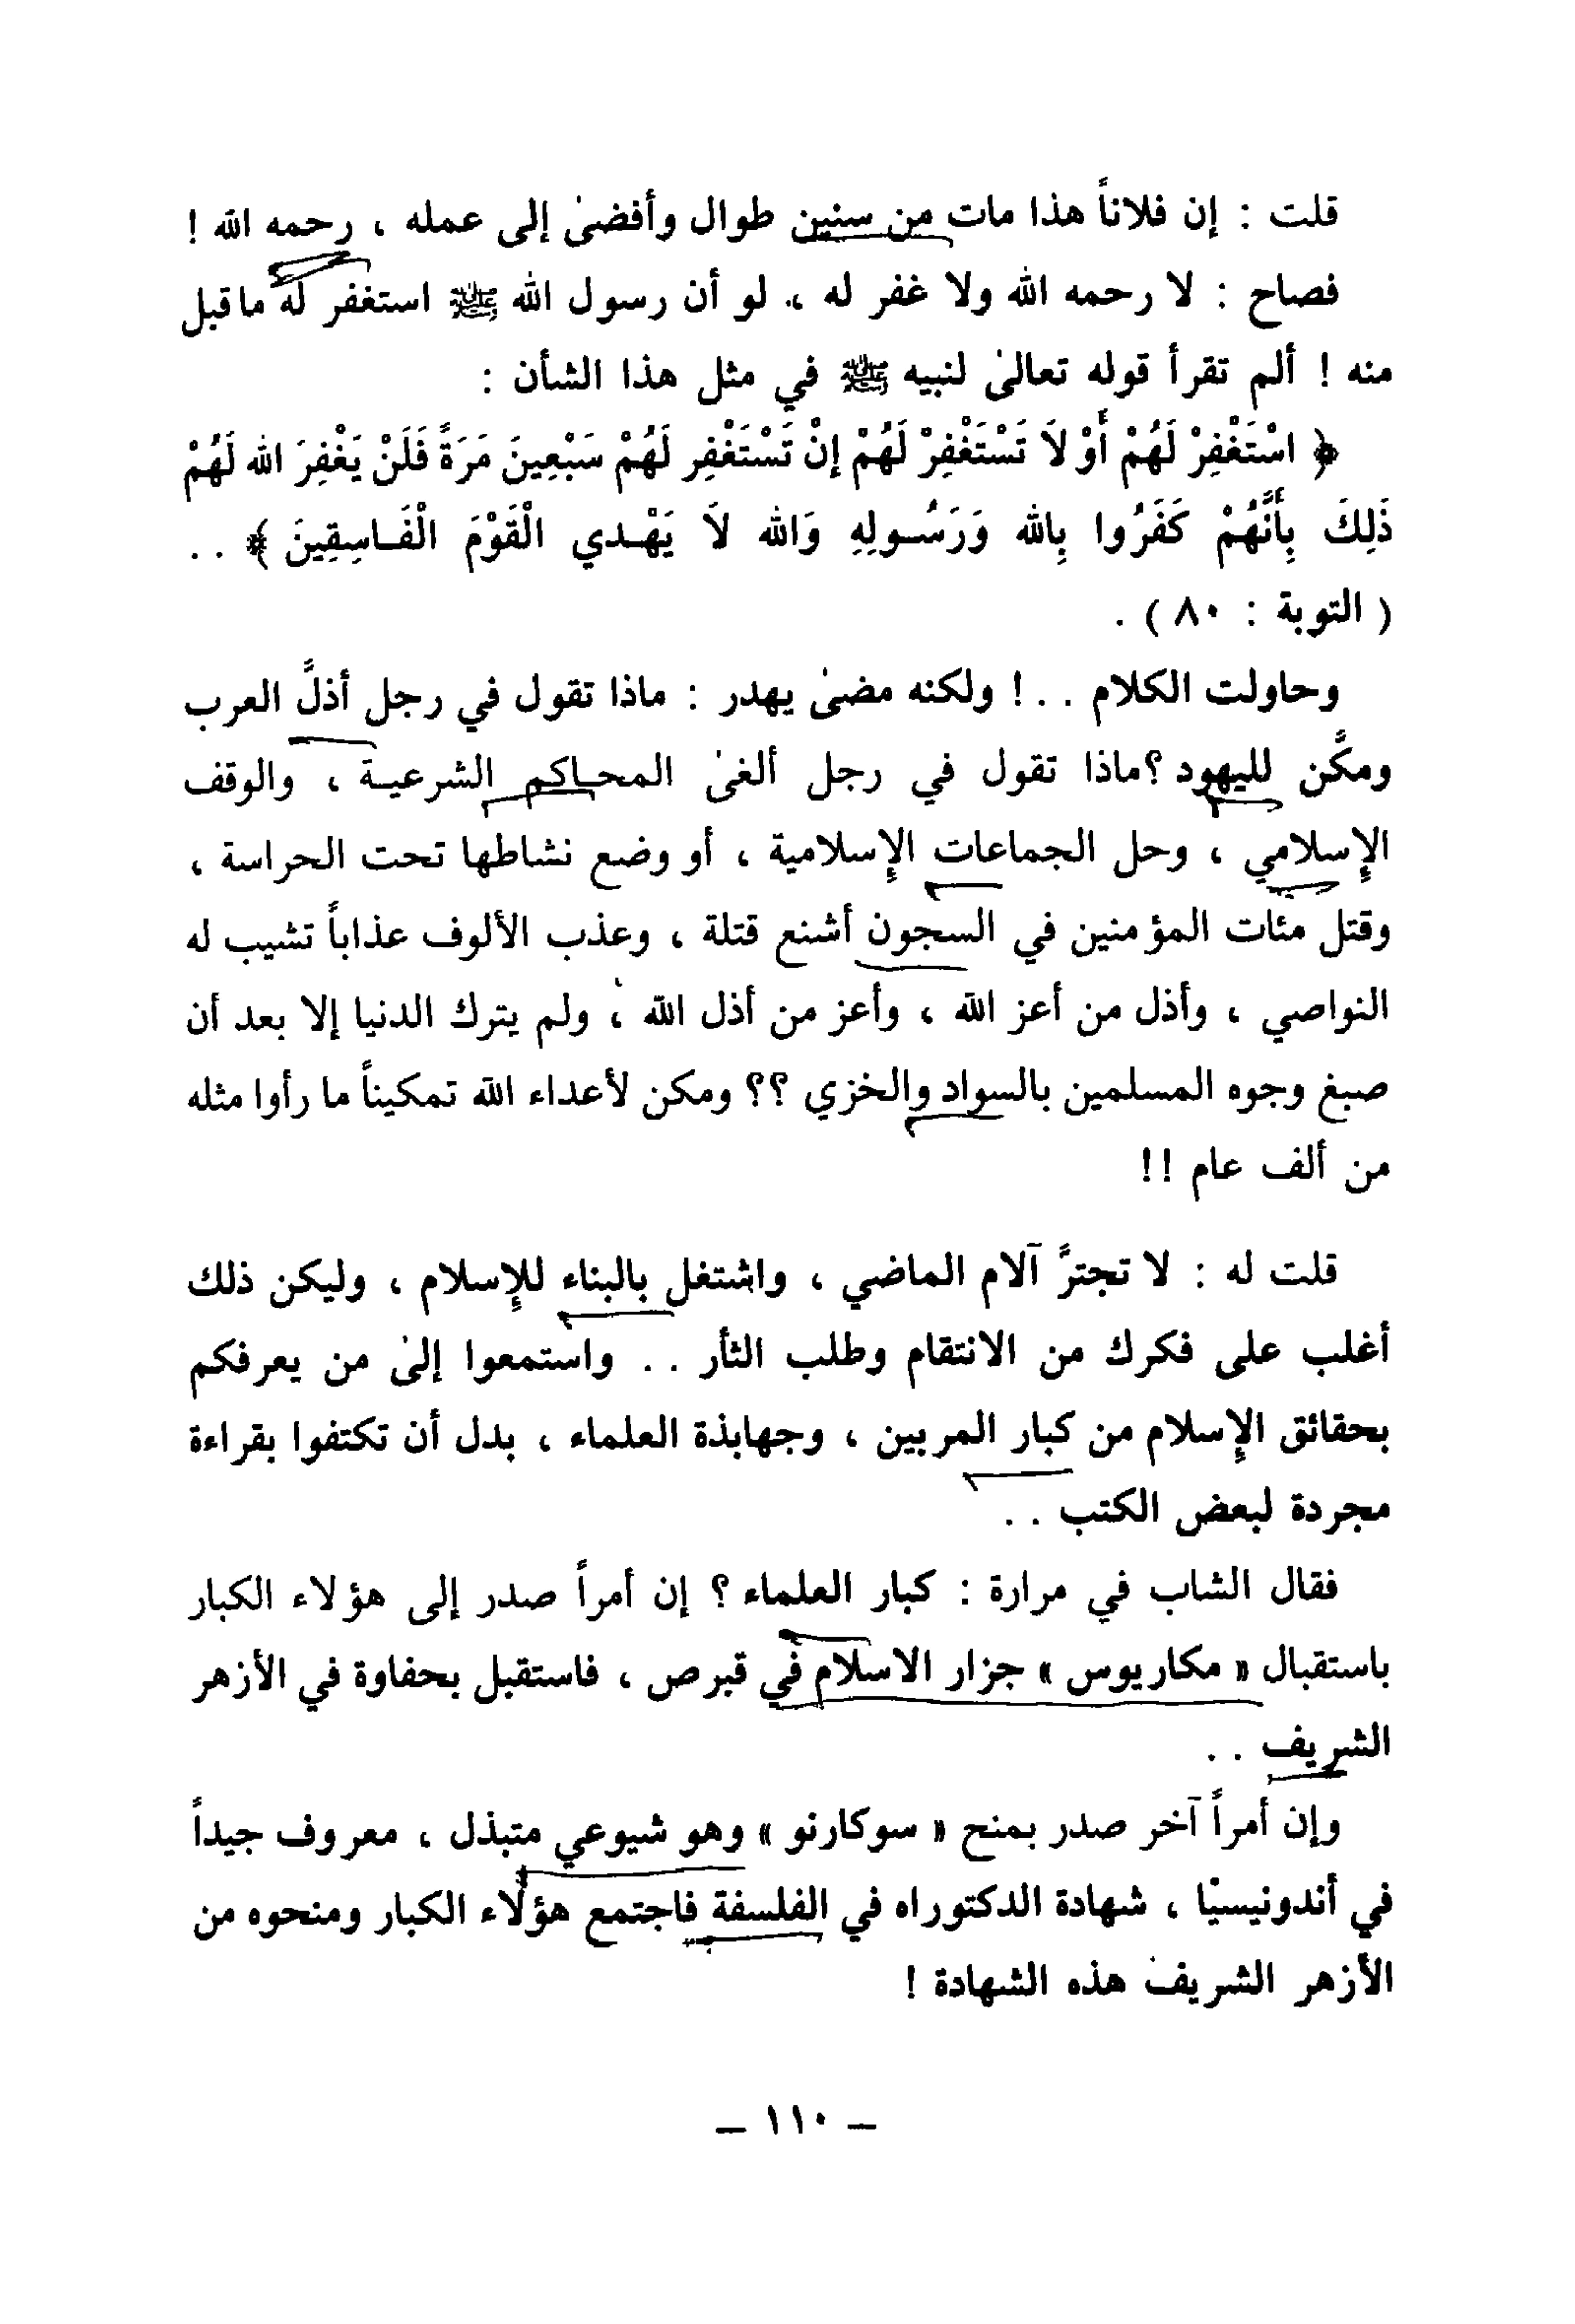 قلت : إن فلاناً هذا مات من سنين طوال وأفضىٰ إلى عمله ، رحمه الله !
فصاح : لا رحمه الله ولا غفر له ، لو أن رسول الله ﷺ استغفر له ماقبل
منه ! ألم تقرأ قوله تعالىٰ لنبيه ﷺ في مثل هذا الشأن :
﴿ اسْتَغْفِرْ لَهُمْ أَوْ لاَ تَسْتَغْفِرْ لَهُمْ إنْ تَسْتَغْفِر لَهُمْ سَبْعِينَ مَرَةً فَلَنْ يَغْفِرَ الله لَهُمْ
ذَلِكَ بِأَنَّهُمْ كَفَرُوا بِالله وَرَسُـولِهِ وَالله لاَ يَهْـدي الْقَوْمَ الْفَـاسِقِينَ ﴾ . .
( التوبة : ٨٠ ) .
وحاولت الكلام . . ! ولكنه مضىٰ يهدر : ماذا تقول في رجل أذلَّ العرب
ومكَّن لليهود ؟ماذا تقول في رجل ألغىٰ المحـاكم الشرعيـة ، والوقف
الإسلامي ، وحل الجماعات الإسلامية ، أو وضع نشاطها تحت الحراسة ،
وقتل مئات المؤمنين في السجون أشنع قتلة ، وعذب الألوف عذاباً تشيب له
النواصي ، وأذل من أعز الله ، وأعز من أذل الله ، ولم يترك الدنيا إلا بعد أن
صبغ وجوه المسلمين بالسواد والخزي ؟؟ ومكن لأعداء الله تمكيناً ما رأوا مثله
من ألف عام !!
قلت له : لا تجترَّ آلام الماضي ، واشتغل بالبناء للإسلام ، وليكن ذلك
أغلب على فكرك من الانتقام وطلب الثأر . . واستمعوا إلىٰ من يعرفكم
بحقائق الإسلام من كبار المربين ، وجهابذة العلماء ، بدل أن تكتفوا بقراءة
مجردة لبعض الكتب . .
فقال الشاب في مرارة : كبار العلماء ؟ إن أمراً صدر إلى هؤلاء الكبار
باستقبال « مكاريوس » جزار الاسلام في قبرص ، فاستقبل بحفاوة في الأزهر
الشريف . .
وإن أمراً آخر صدر بمنح « سوكارنو » وهو شيوعي متبذل ، معروف جيداً
في أندونيسيا ، شهادة الدكتوراه في الفلسفة فاجتمع هؤلاء الكبار ومنحوه من
الأزهر الشريف هذه الشهادة !
– ١١٠ –